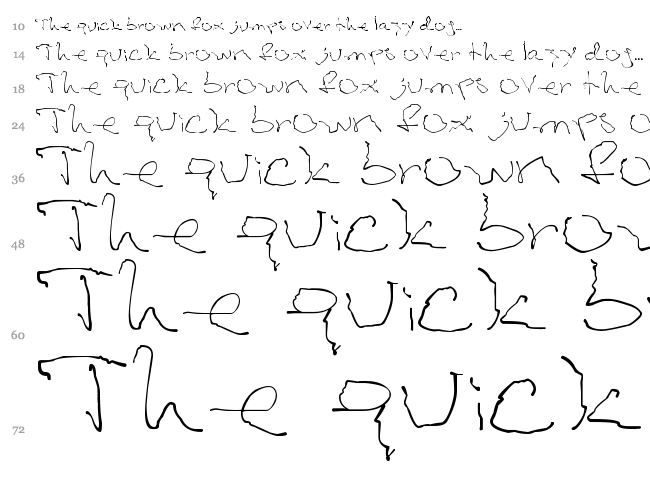 10 The quick brown fox jumps over the lazy dog...
14 The quick brown fox jumps over the lazy dog...
18 The quick brown fox jumps over the
24 The quick brown fox jumps o
36 The quick brown fo
48 The quick brow
60 The quick b
72 The quick